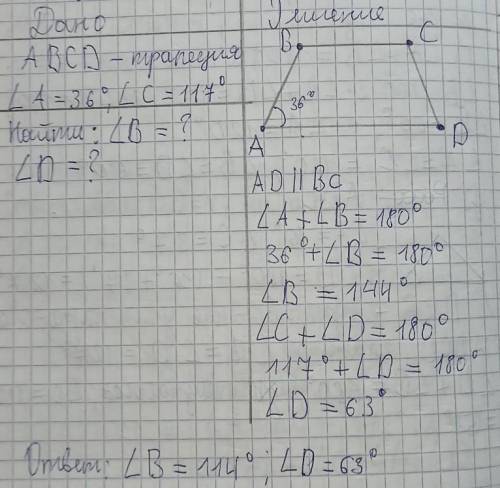 Дано
ABCD - трапеция
∠A = 36°, ∠C = 117°
Найти: ∠B = ?
∠D = ?
Решение
B
C
36°
A
D
AD || BC
∠A + ∠B = 180°
36° + ∠B = 180°
∠B = 144°
∠C + ∠D = 180°
117° + ∠D = 180°
∠D = 63°
Ответ: ∠B = 114°; ∠D = 63°